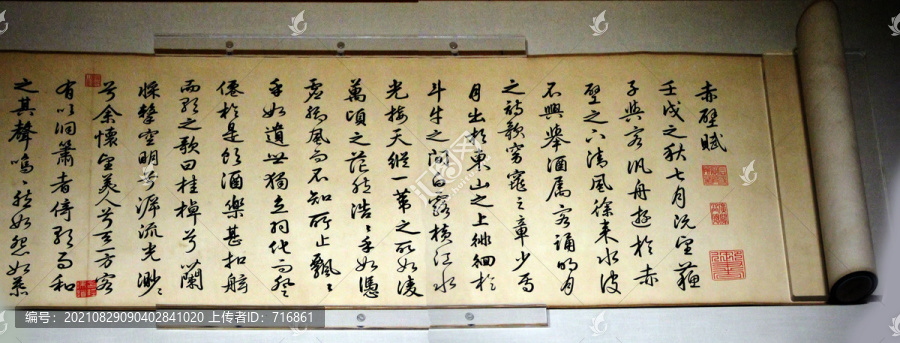 赤壁賦
壬戌之秋七月既望蘇
子與客汎舟遊於赤
壁之下清風徐来水波
不興舉酒屬客誦明月
之詩歌窈窕之章少焉
月出於東山之上徘徊於
斗牛之間白露橫江水
光接天縱一葦之所如凌
萬頃之茫然浩〻乎如憑
虛御風而不知所止飄〻
乎如遺世獨立羽化而登
僊於是飲酒樂甚扣舷
而歌之歌曰桂棹兮蘭
槳擊空明兮泝流光渺〻
兮余懷望美人兮天一方客
有吹洞簫者倚歌而和
之其聲嗚〻然如怨如慕
编号：20210829090402841020 上传者ID：716861